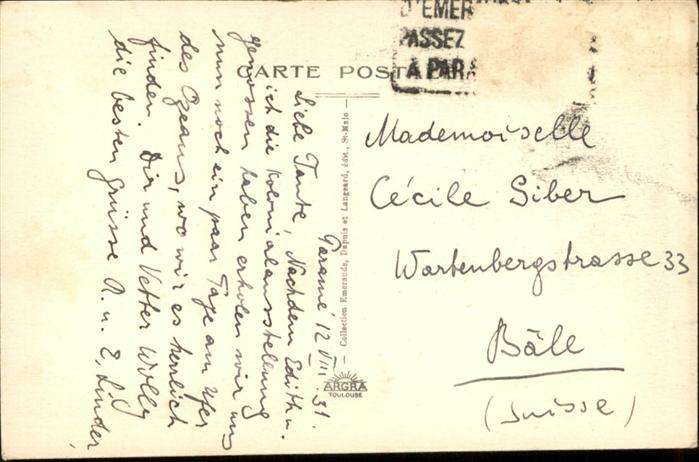 D'EMER
PASSEZ
A PAR
CARTE POST
Paramé 12 VIII 31.
Liebe Tante, Nachdem Edith u.
ich die Kolonialausstellung
genossen haben erholen wir uns
nun noch ein paar Tage am Ufer
des Ozeans, wo wir es herrlich
finden. Dir und Vetter Willy
die besten Grüsse A. u. E. Linder,
Collection Emeraude, Dupuis et Langeard, édit., St-Malo
ARGRA
TOULOUSE
Mademoiselle
Cécile Siber
Wartenbergstrasse 33
Bâle
(Suisse)